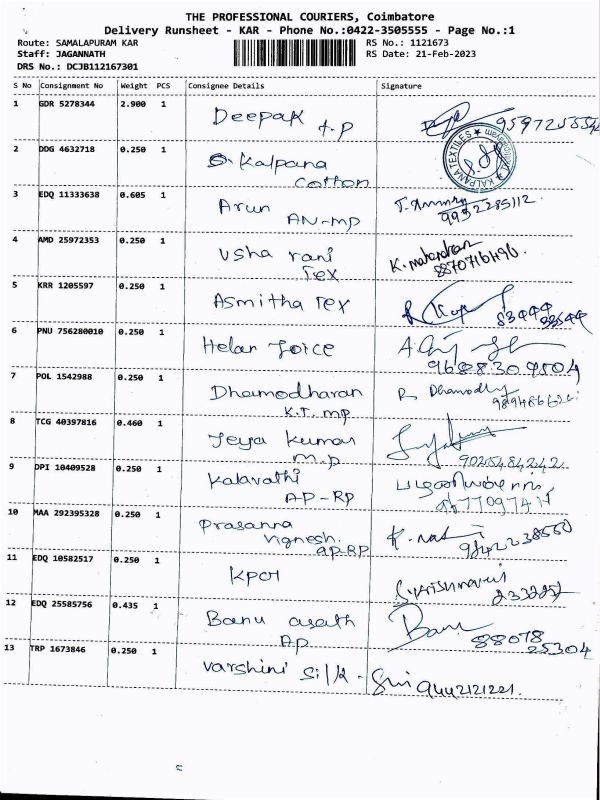 THE PROFESSIONAL COURIERS, Coimbatore
Delivery Runsheet - KAR - Phone No.:0422-3505555 - Page No.:1
Route: SAMALAPURAM KAR RS No.: 1121673
Staff: JAGANNATH RS Date: 21-Feb-2023
DRS No.: DCJB112167301
S No Consignment No Weight PCS Consignee Details Signature
1 GDR 5278344 2.900 1 Deepak t.p
2 DDG 4632718 0.250 1 S. Kalpana
cotton
KALPANA TEXTILES
3 EDQ 11333638 0.605 1 Arun
AN-mp 9952285112
4 AMD 25972353 0.250 1 Usha rani K. mahendran
Tex 8870716490
5 KRR 1205597 0.250 1 Asmitha Tex 83444
33544
6 PNU 756280010 0.250 1 Helan Joice
9688309504
7 POL 1542988 0.250 1 Dhamodharan
K.T. mp
8 TCG 40397816 0.460 1 Jeya kumar
m.p 9025484242
9 DPI 10409528 0.250 1 Kalavathi
AP-RP
10 MAA 292395328 0.250 1 Prasanna
Vignesh. 9842238550
AP-RP
11 EDQ 10582517 0.250 1 KPCH
12 EDQ 25585756 0.435 1 Banu asath Banu
AP 88078
25304
13 TRP 1673846 0.250 1 Varshini Silk - 9442121221.